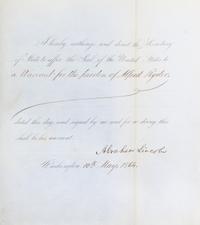 I hereby authorize and direct the Secretary
of State to affix the Seal of the United States to
a Warrant for the pardon of Alfred Ryder
dated this day and signed by me and for so doing this
shall be his warrant.
Abraham Lincoln
Washington 10th May, 1864.